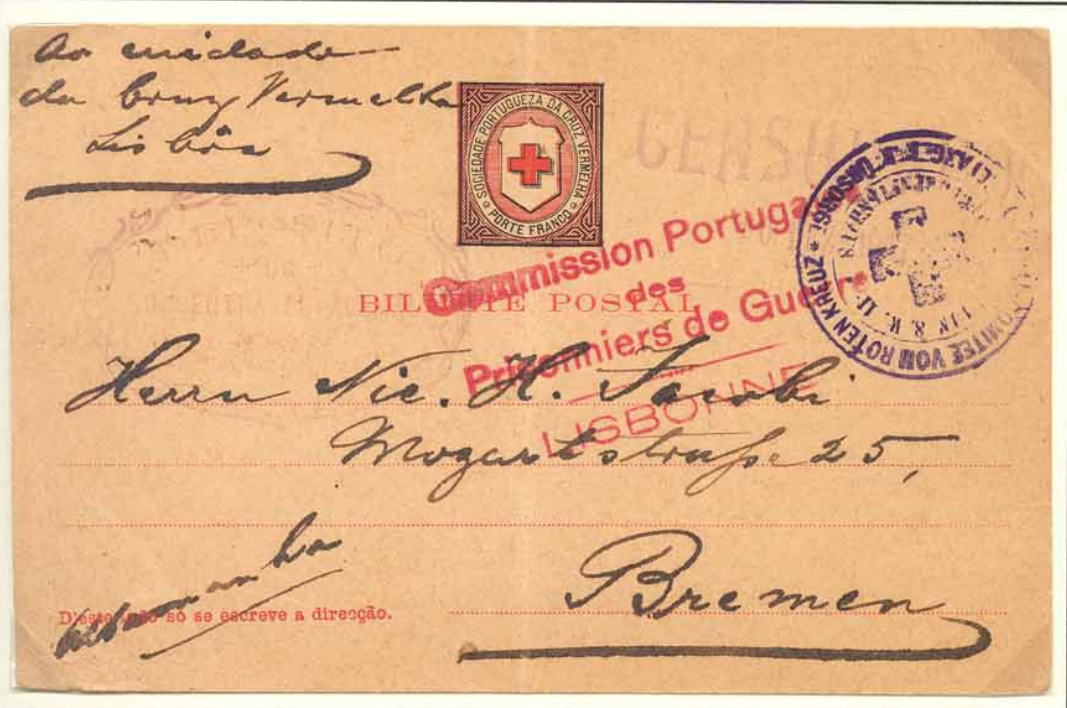 Ao cuidado
da Cruz Vermelha
Lisbôa
SOCIEDADE PORTUGUEZA DA CRUZ VERMELHA
PORTE FRANCO
Commission Portugaise
des
Prisonniers de Guerre
LISBONNE
KOMITEE VOM ROTEN KREUZ
BILHETE POSTAL
Herrn Nic. H. Jacobi
Mozartstrasse 25,
Bremen
Allemanha
D'este lado só se escreve a direcção.